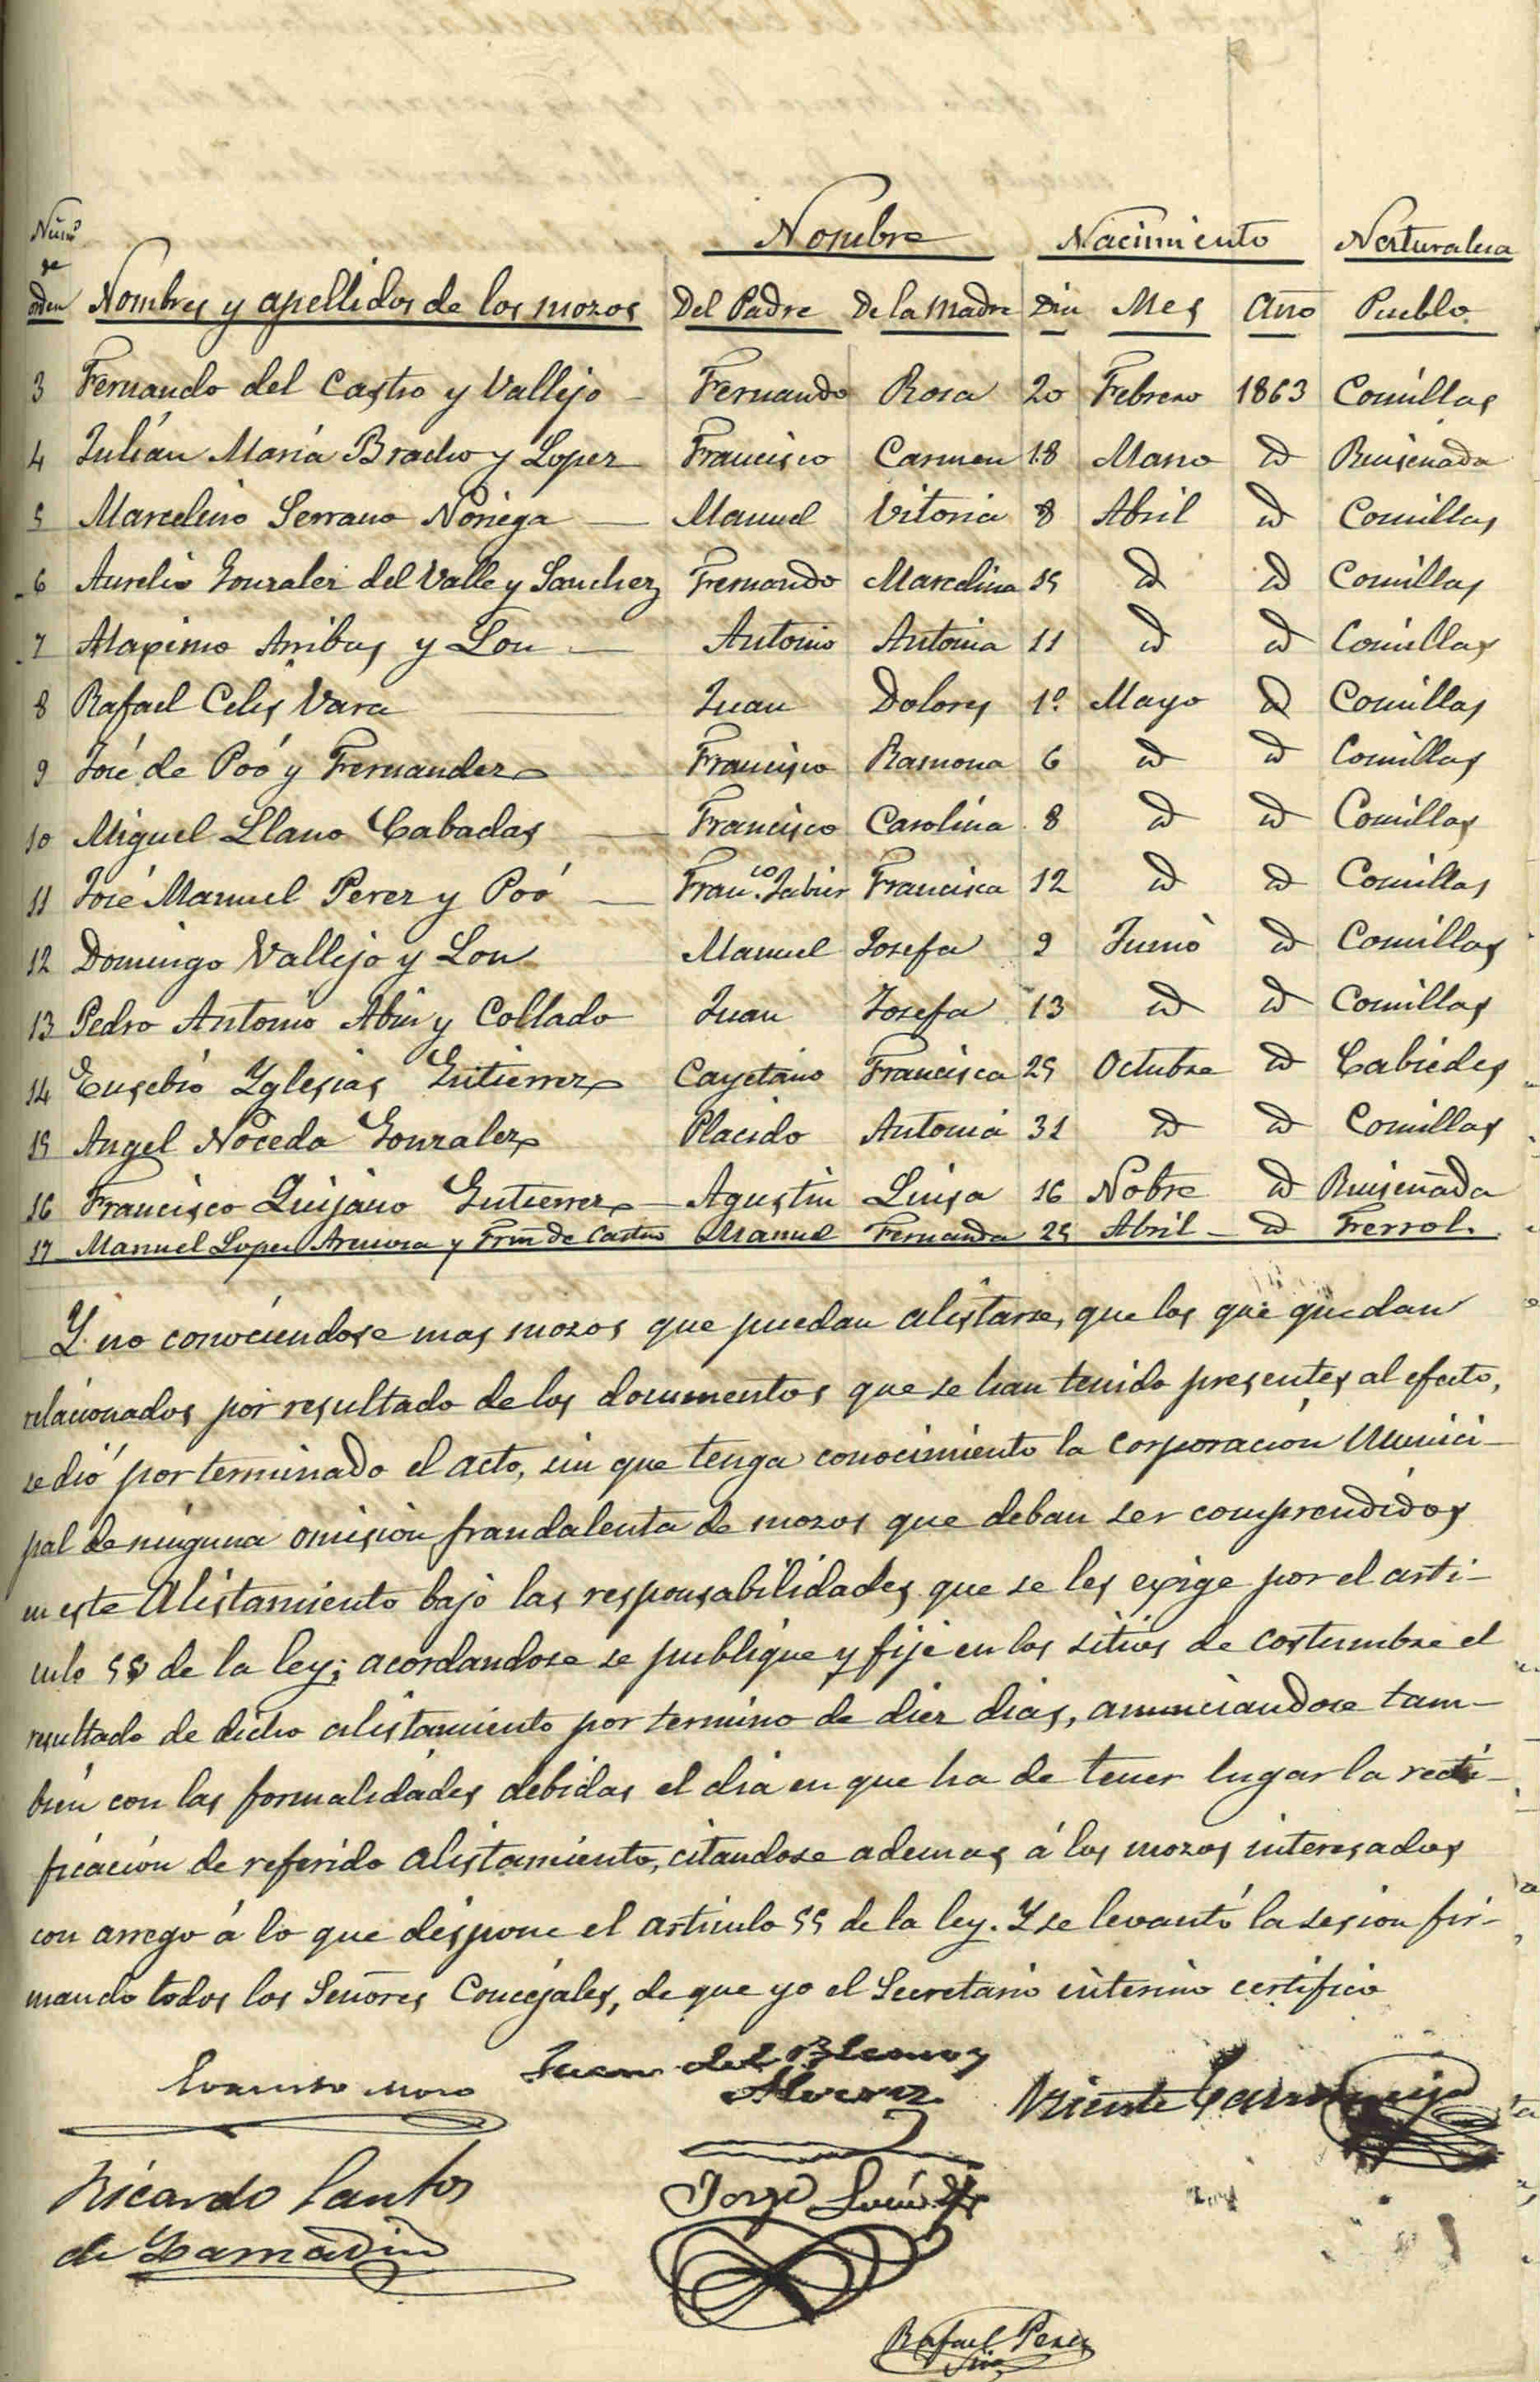 Núm.º Nombre Nacimiento Naturaleza
de
orden Nombres y apellidos de los mozos Del Padre De la Madre Dia Mes Año Pueblo
3 Fernando del Castro y Vallejo Fernando Rosa 20 Febrero 1863 Comillas
4 Julián María Bracho y Lopez Francisco Carmen 18 Marzo id Ruiseñada
5 Marcelino Serrano Noriega — Manuel Vitoria 8 Abril id Comillas
6 Aurelio Gonzalez del Valle y Sanchez Fernando Marcelina 15 id id Comillas
7 Maximo Arribas y Lou — Antonio Antonia 11 id id Comillas
8 Rafael Celis Vara — Juan Dolores 1º Mayo id Comillas
9 José de Poó y Fernandez Francisco Ramona 6 id id Comillas
10 Miguel Llano Cabadas — Francisco Carolina 8 id id Comillas
11 José Manuel Perez y Poó — Fran.co Jabier Francisca 12 id id Comillas
12 Domingo Vallejo y Lou Manuel Josefa 9 Junio id Comillas
13 Pedro Antonio Abin y Collado Juan Josefa 13 id id Comillas
14 Eusebio Yglesias Gutierrez Cayetano Francisca 25 Octubre id Cabiedes
15 Angel Noceda Gonzalez Placido Antonia 31 id id Comillas
16 Francisco Quijano Gutierrez — Agustin Luisa 16 Nobre id Ruiseñada
17 Manuel Lopez y de Castro Manuel Fernanda 25 Abril — id Ferrol.
Y no conociendose mas mozos que puedan alistarse, que los que quedan
relacionados por resultado de los documentos que se han tenido presentes al efecto,
se dió por terminado el acto, sin que tenga conocimiento la corporación Munici-
pal de ninguna omision fraudalenta de mozos que deban ser comprendidos
en este Alistamiento bajo las responsabilidades que se les exige por el arti-
culo de la ley; acordandose se publique y fije en los sitios de costumbre el
resultado de dicho alistamiento por termino de diez dias, anunciandose tam-
bien con las formalidades debidas el dia en que ha de tener lugar la recti-
ficación de referido alistamiento, citandose ademas á los mozos interesados
con arrego á lo que dispone el articulo 55 de la ley. Y se levantó la sesion fir-
mando todos los Señores Concejales, de que yo el Secretario interino certifico
Juan del Blanco y
Evaristo Moro Alvarez Vicente
Ricardo Santos Jorge
de Lamadrid
Rafael Perez